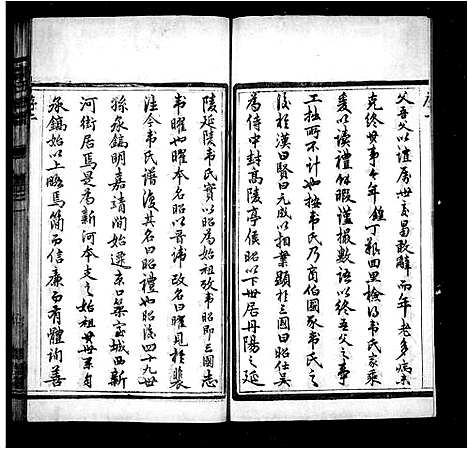 父吾父以誼屬世交曷敢辭而年老多病未
克終其事今年鎮丁艱回里檢得韦氏家乘
爰以讀禮餘暇謹撮數語以終吾父之事
工拙所不計也按韦氏乃商伯國豕韦氏之
後於漢曰賢曰元成以相業顯於三國曰昭仕吳
為侍中封高陵亭侯昭以下世居丹陽之延
陵延陵韦氏實以昭為始祖攷韦昭即三國志
韦曜也曜本名昭以晋諱改名曰曜見於裴
注今韦氏譜復其名曰昭禮也昭後四十九世
孫永鎬明嘉靖間始遷京口築室城西新
河街居焉是為新河本支之始祖其世系自
永鎬始以上略焉簡而信廉而有體洵善